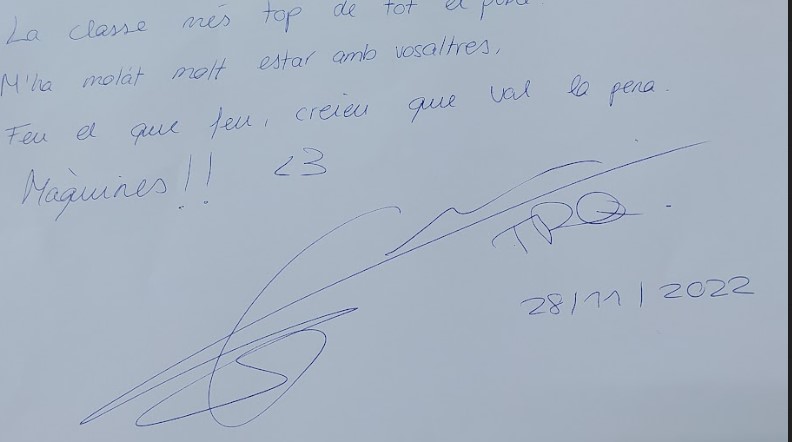 La classe més top de tot el
M'ha molat molt estar amb vosaltres,
Feu el que feu, creieu que val la pena.
Màquines!! <3
TPQ.
28/11/2022